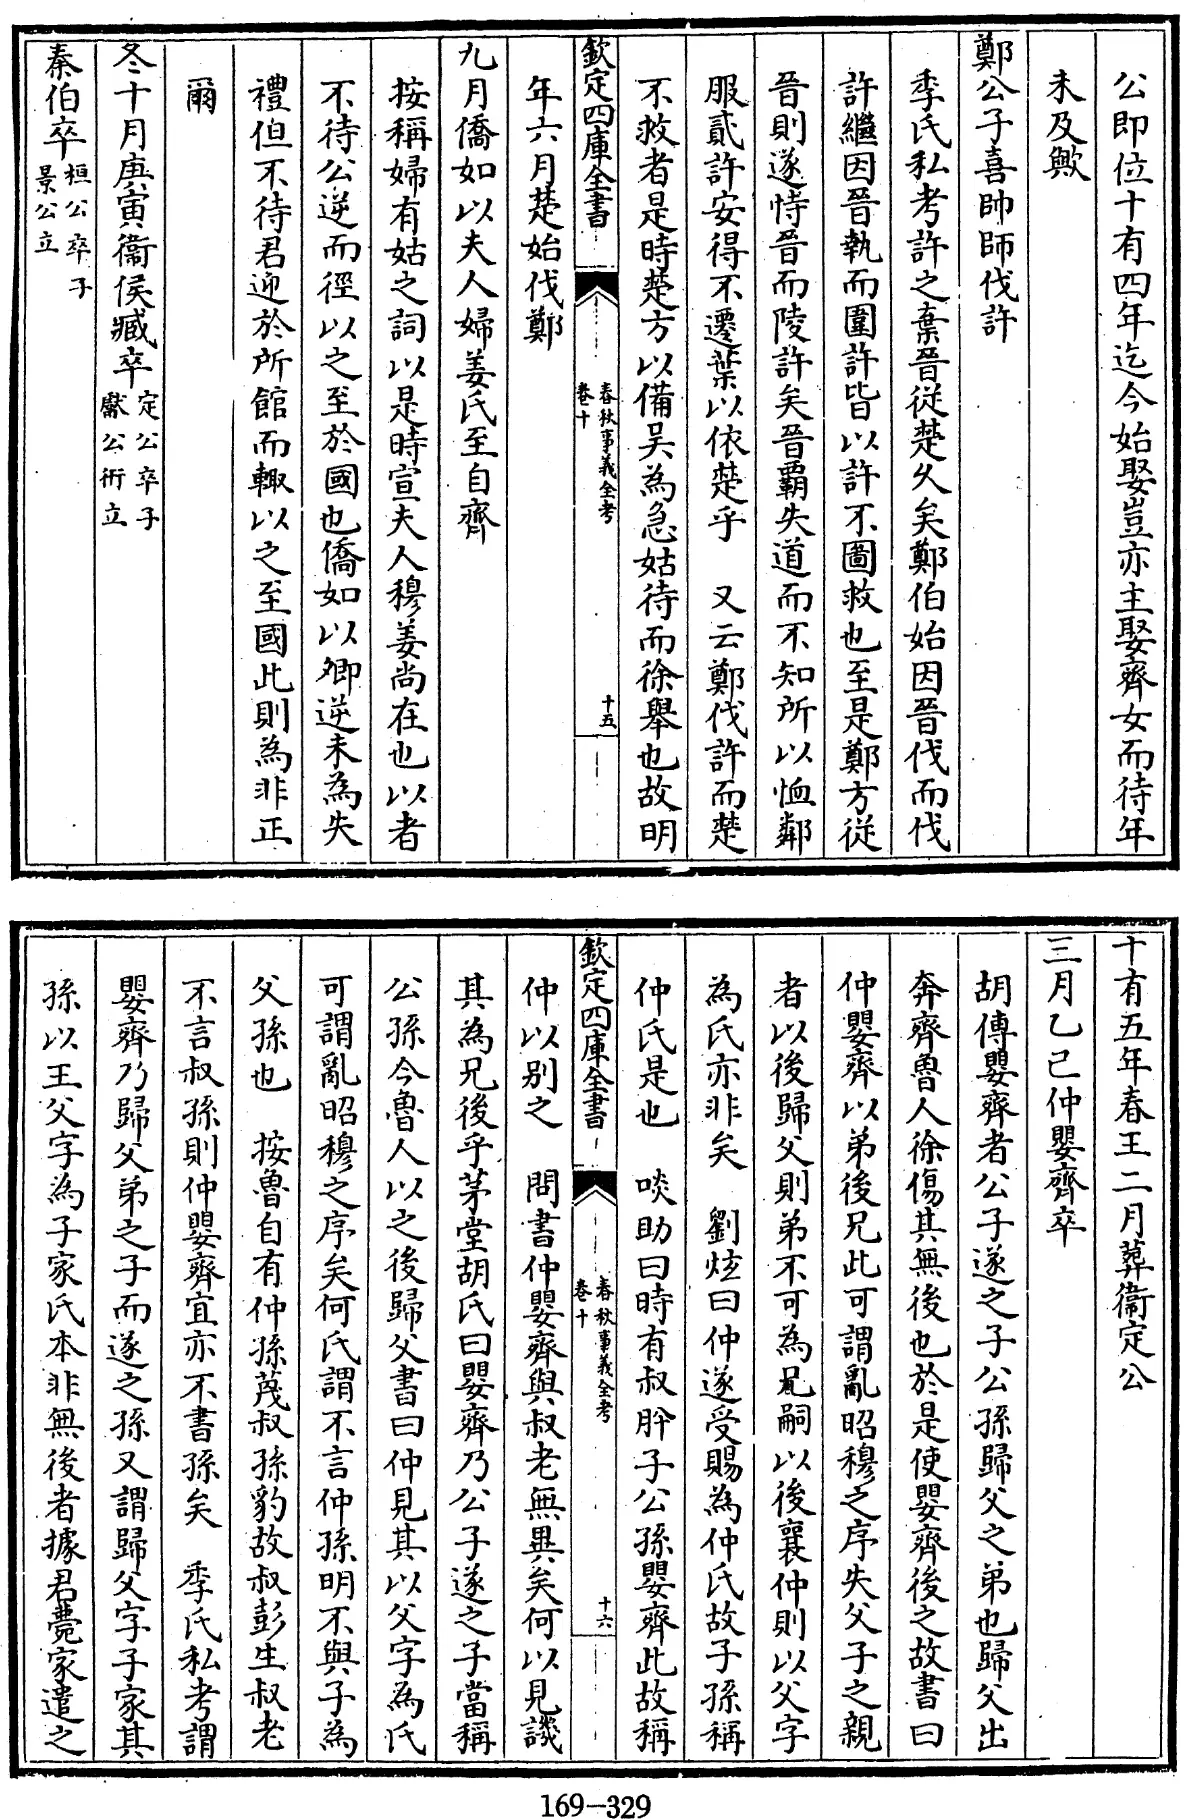 公即位十有四年迄今始娶豈亦主娶齊女而待年
未及歟
鄭公子喜帥師伐許
季氏私考許之棄晉從楚久矣鄭伯始因晉伐而伐
許繼因晉執而圍許皆以許不圖救也至是鄭方從
晉則遂恃晉而陵許矣晉覇失道而不知所以恤鄰
服貳許安得不遷葉以依楚乎　又云鄭伐許而楚
不救者是時楚方以備吳為急姑待而徐舉也故明
欽定四庫全書
春秋事義全考
卷十
十五
年六月楚始伐鄭
九月僑如以夫人婦姜氏至自齊
按稱婦有姑之詞以是時宣夫人穆姜尚在也以者
不待公逆而徑以之至於國也僑如以卿逆未為失
禮但不待君迎於所館而輙以之至國此則為非正
爾
冬十月庚寅衞侯臧卒定公卒子
獻公衎立
秦伯卒桓公卒子
景公立
十有五年春王二月葬衞定公
三月乙巳仲嬰齊卒
胡傳嬰齊者公子遂之子公孫歸父之弟也歸父出
奔齊魯人徐傷其無後也於是使嬰齊後之故書曰
仲嬰齊以弟後兄此可謂亂昭穆之序失父子之親
者以後歸父則弟不可為兄嗣以後襄仲則以父字
為氏亦非矣　劉炫曰仲遂受賜為仲氏故子孫稱
仲氏是也　啖助曰時有叔肸子公孫嬰齊此故稱
欽定四庫全書
春秋事義全考
卷十
十六
仲以别之　問書仲嬰齊與叔老無異矣何以見譏
其為兄後乎茅堂胡氏曰嬰齊乃公子遂之子當稱
公孫今魯人以之後歸父書曰仲見其以父字為氏
可謂亂昭穆之序矣何氏謂不言仲孫明不與子為
父孫也　按魯自有仲孫蔑叔孫豹故叔彭生叔老
不言叔孫則仲嬰齊宜亦不書孫矣　季氏私考謂
嬰齊乃歸父弟之子而遂之孫又謂歸父字子家其
孫以王父字為子家氏本非無後者據君薨家遣之
169-329